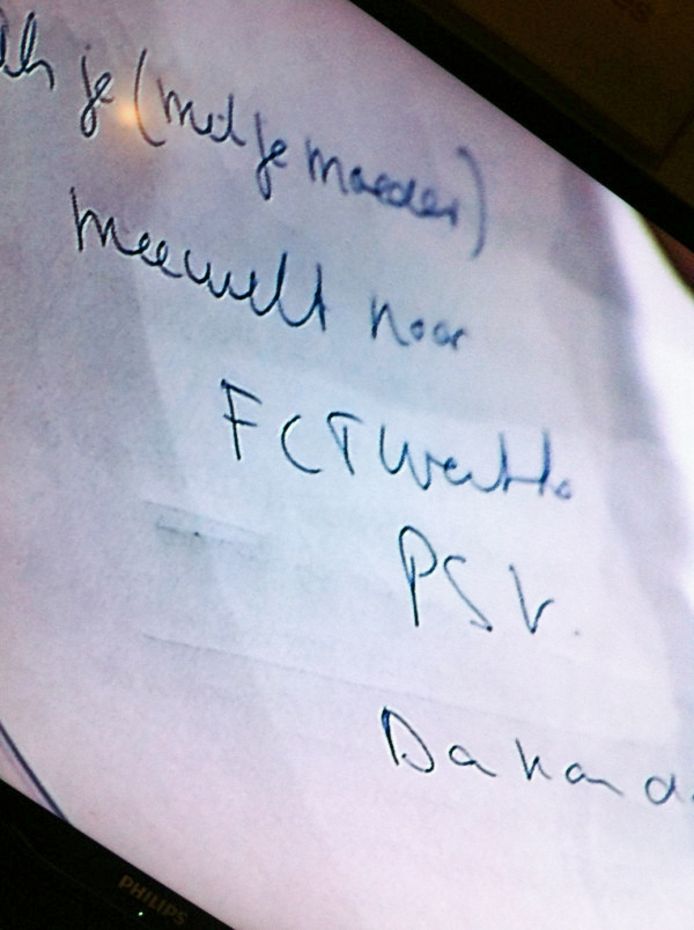 je (met je moeder)
meewilt naar
FC Twente
PSV.
Da kan d
PHILIPS